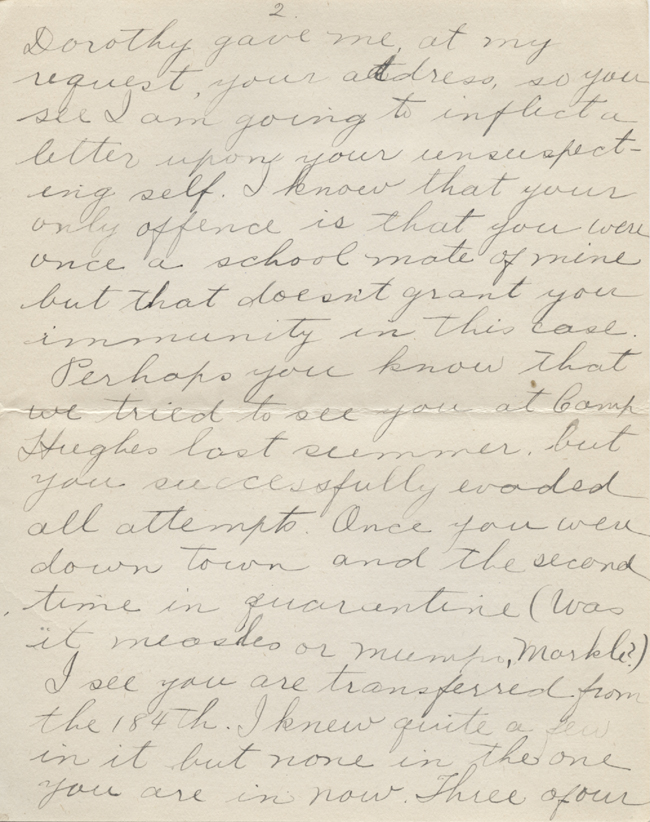 2.
Dorothy gave me, at my
request, your address, so you
see I am going to inflict a
letter upon your unsuspect-
ing self. I know that your
only offence is that you were
once a school mate of mine
but that doesn't grant you
immunity in this case.
Perhaps you know that
we tried to see you at Camp
Hughes last summer, but
you successfully evaded
all attempts. Once you were
down town and the second
time in quarentine (Was
it measles or mumps, Markle?)
I see you are transferred from
the 184th. I knew quite a few
in it but none in the one
you are in now. Three of our